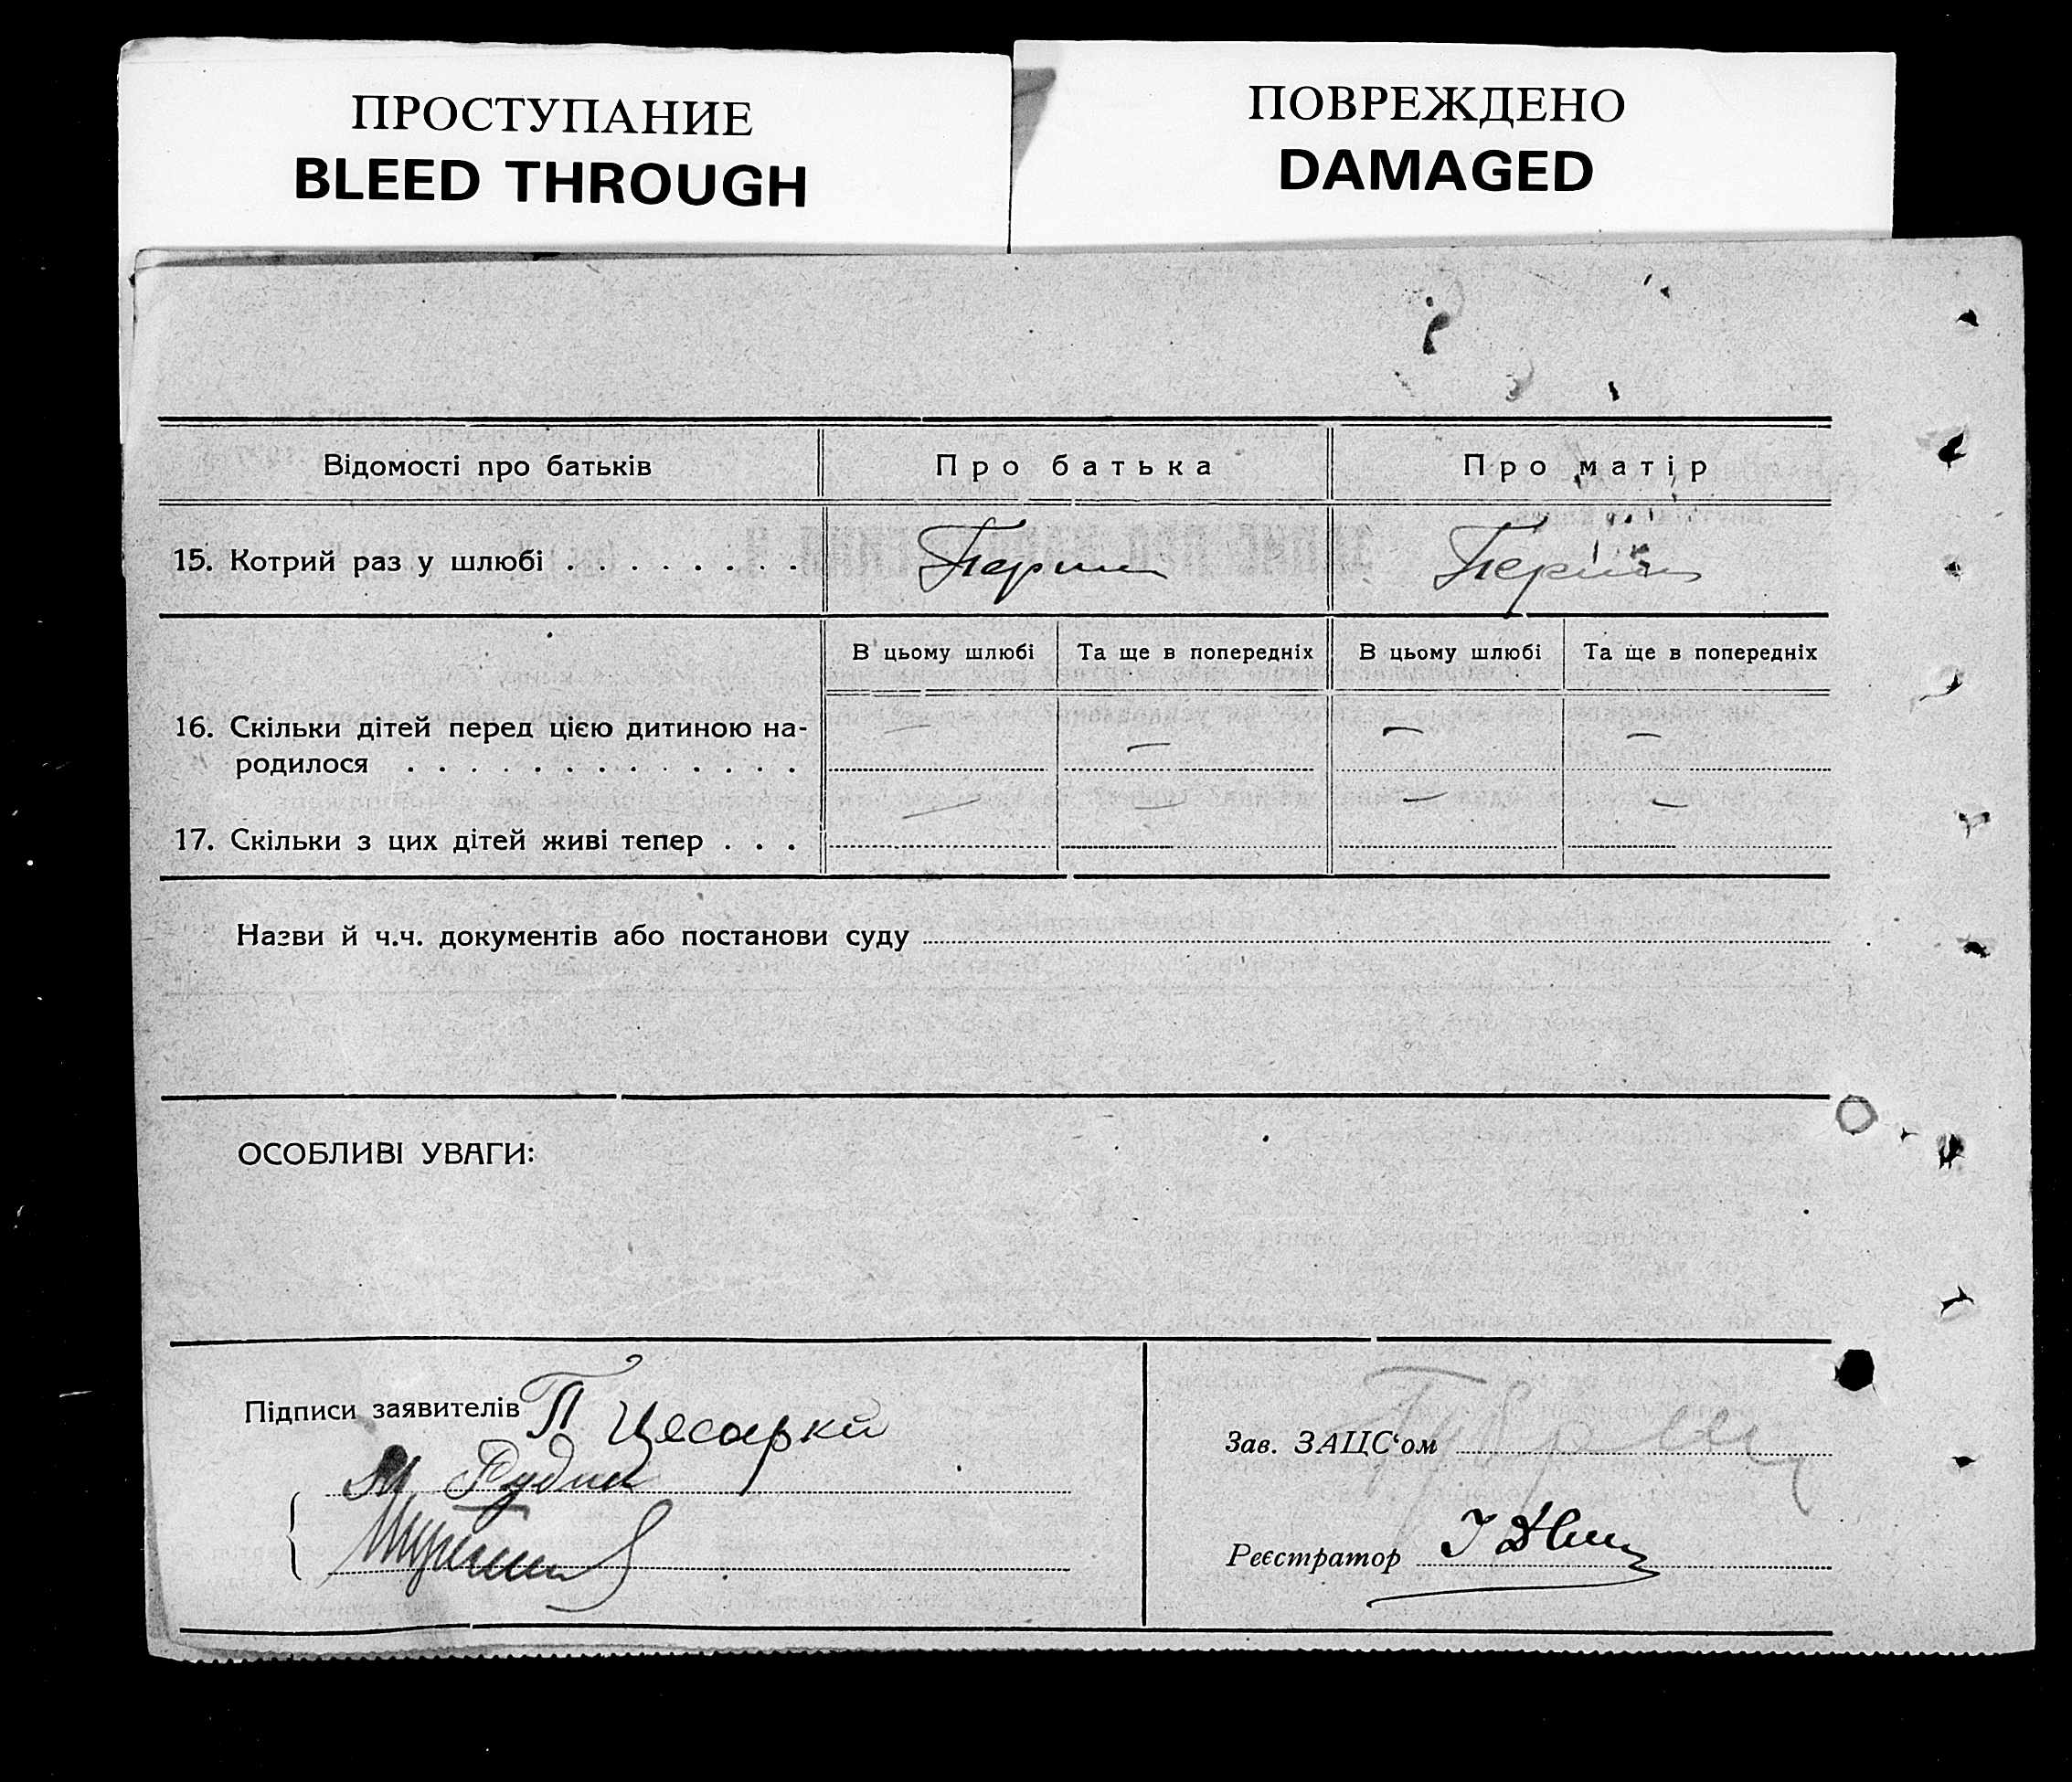 ПРОСТУПАНИЕ
BLEED THROUGH
ПОВРЕЖДЕНО
DAMAGED
Відомості про батьків Про батька Про матір
15. Котрий раз у шлюбі . . . . . . . . Перший Перший
В цьому шлюбі Та ще в попередніх В цьому шлюбі Та ще в попередніх
16. Скільки дітей перед цією дитиною на- — — — —
родилося . . . . . . . . . . . . .
17. Скільки з цих дітей живі тепер . . . — — — —
Назви й ч.ч. документів або постанови суду
ОСОБЛИВІ УВАГИ:
Підписи заявителів П Цесарка
М Рудни
Зав. ЗАЦС‘ом
Реєстратор